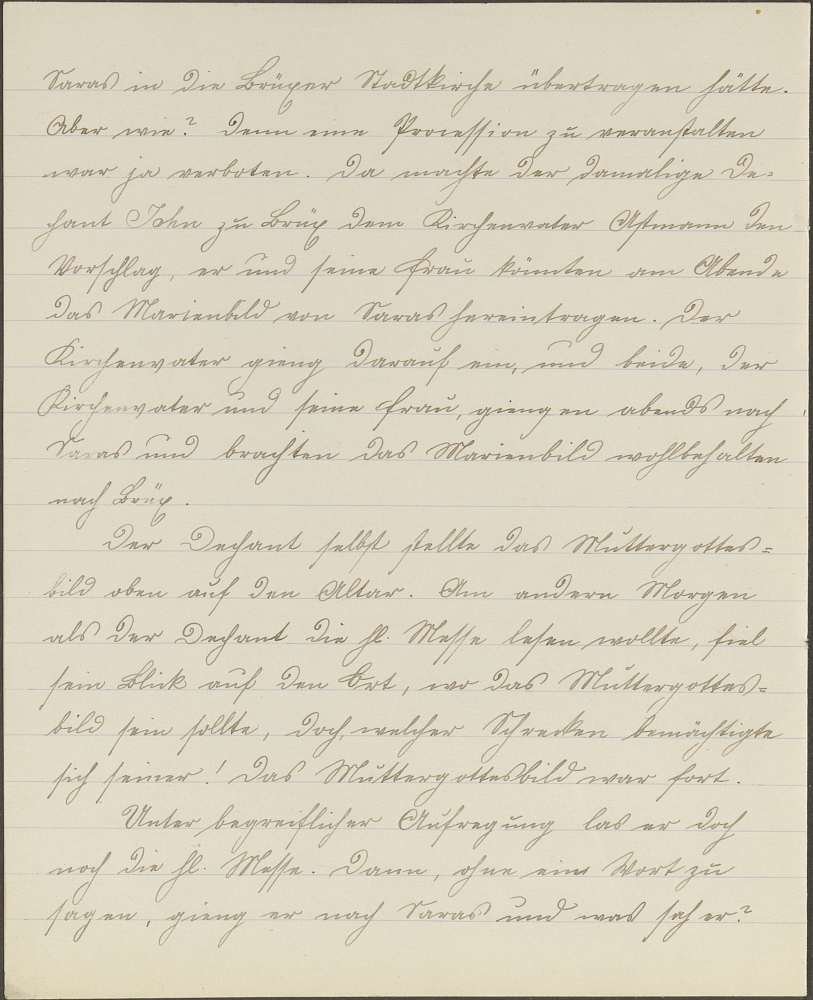 Saras in die Brüxer Stadtkirche übertragen hätte.
Aber wie? Denn eine Procession zu veranstalten
war ja verboten. Da machte der damalige De-
chant John zu Brüx dem Kirchenvater Astmann den
Vorschlag, er und seine Frau könnten am Abende
das Marienbild von Saras hereintragen. Der
Kirchenvater gieng darauf ein, und beide, der
Kirchenvater und seine Frau, giengen abends nach
Saras und brachten das Marienbild wohlbehalten
nach Brüx.
Der Dechant selbst stellte das Muttergottes=
bild oben auf den Altar. Am andern Morgen
als der Dechant die hl. Messe lesen wollte, fiel
sein Blick auf den Ort, wo das Muttergottes=
bild sein sollte, doch, welcher Schrecken bemächtigte
sich seiner! Das Muttergottesbild war fort.
Unter begreiflicher Aufregung las er doch
noch die hl. Messe. Dann, ohne ein Wort zu
sagen, gieng er nach Saras und was sah er?